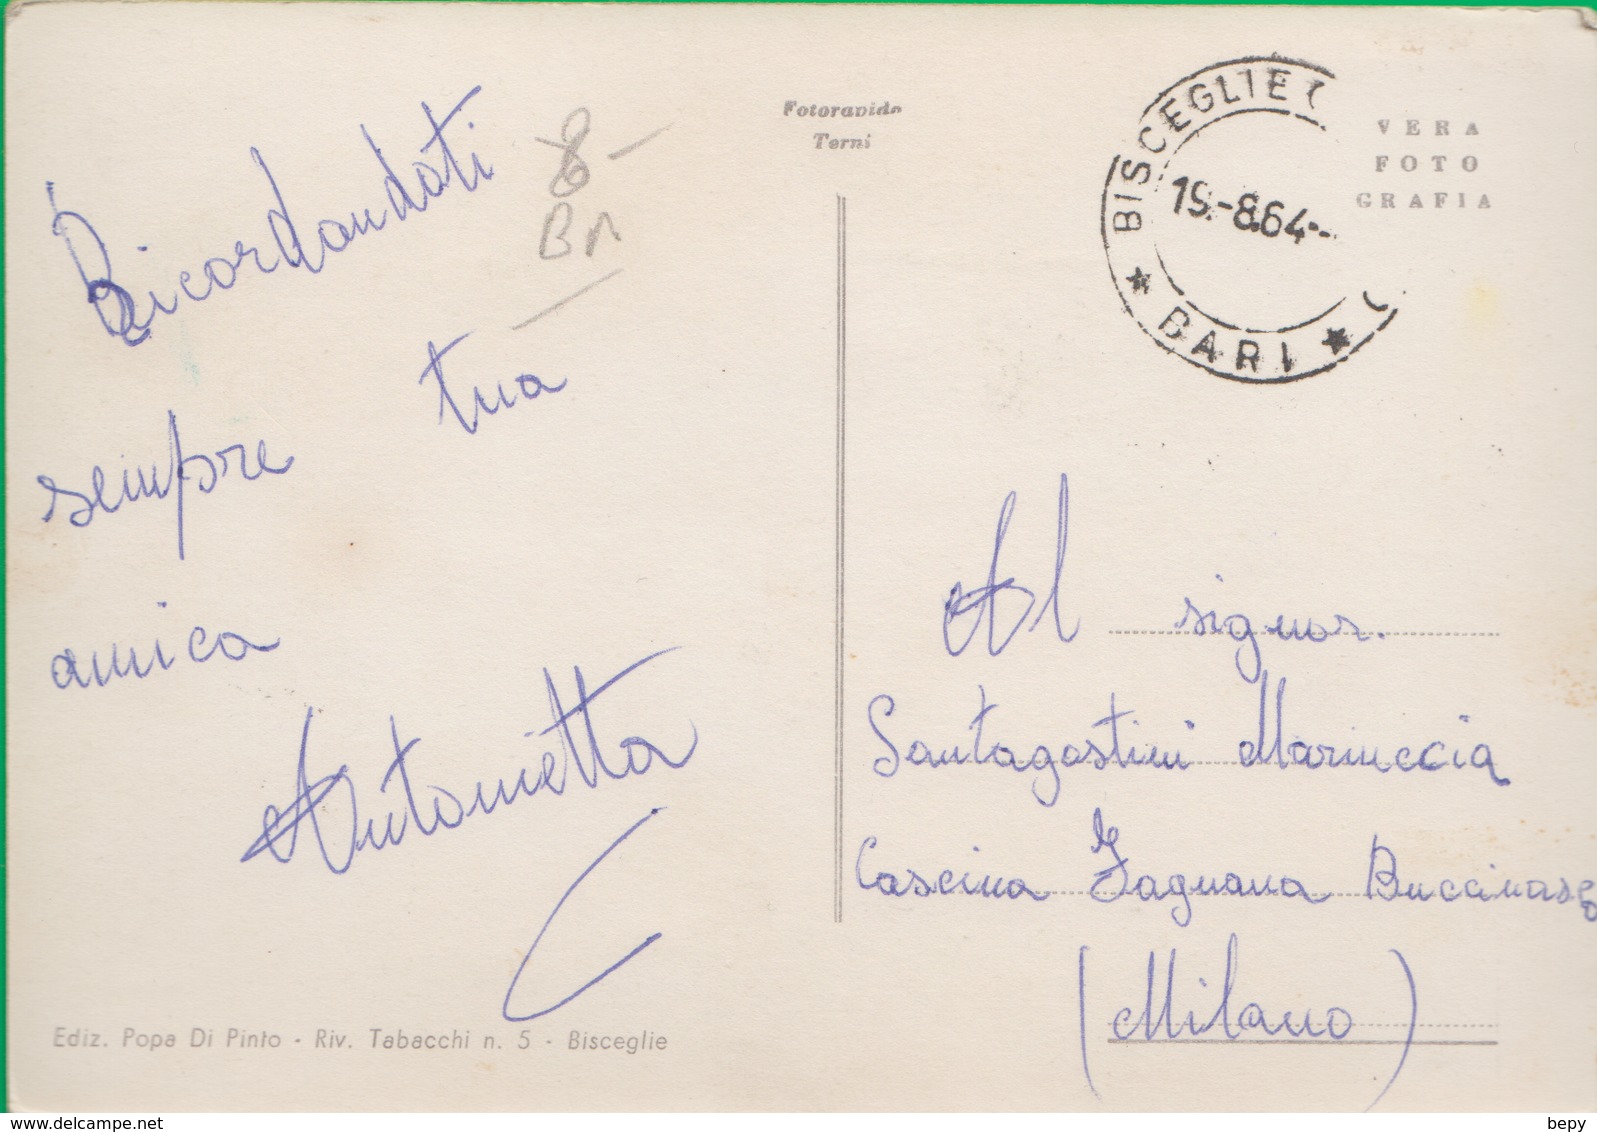 Ricordandoti
sempre tua
amica
Antonietta
8-
Bn
Ediz. Popa Di Pinto - Riv. Tabacchi n. 5 - Bisceglie
Fotorapida
Terni
BISCEGLIE
19.-8.64--
* BARI *
VERA
FOTO
GRAFIA
Al signor.
Santagostini Mariuccia
Cascina Fagnana Buccinasco
(Milano)
www.delcampe.net
bepy